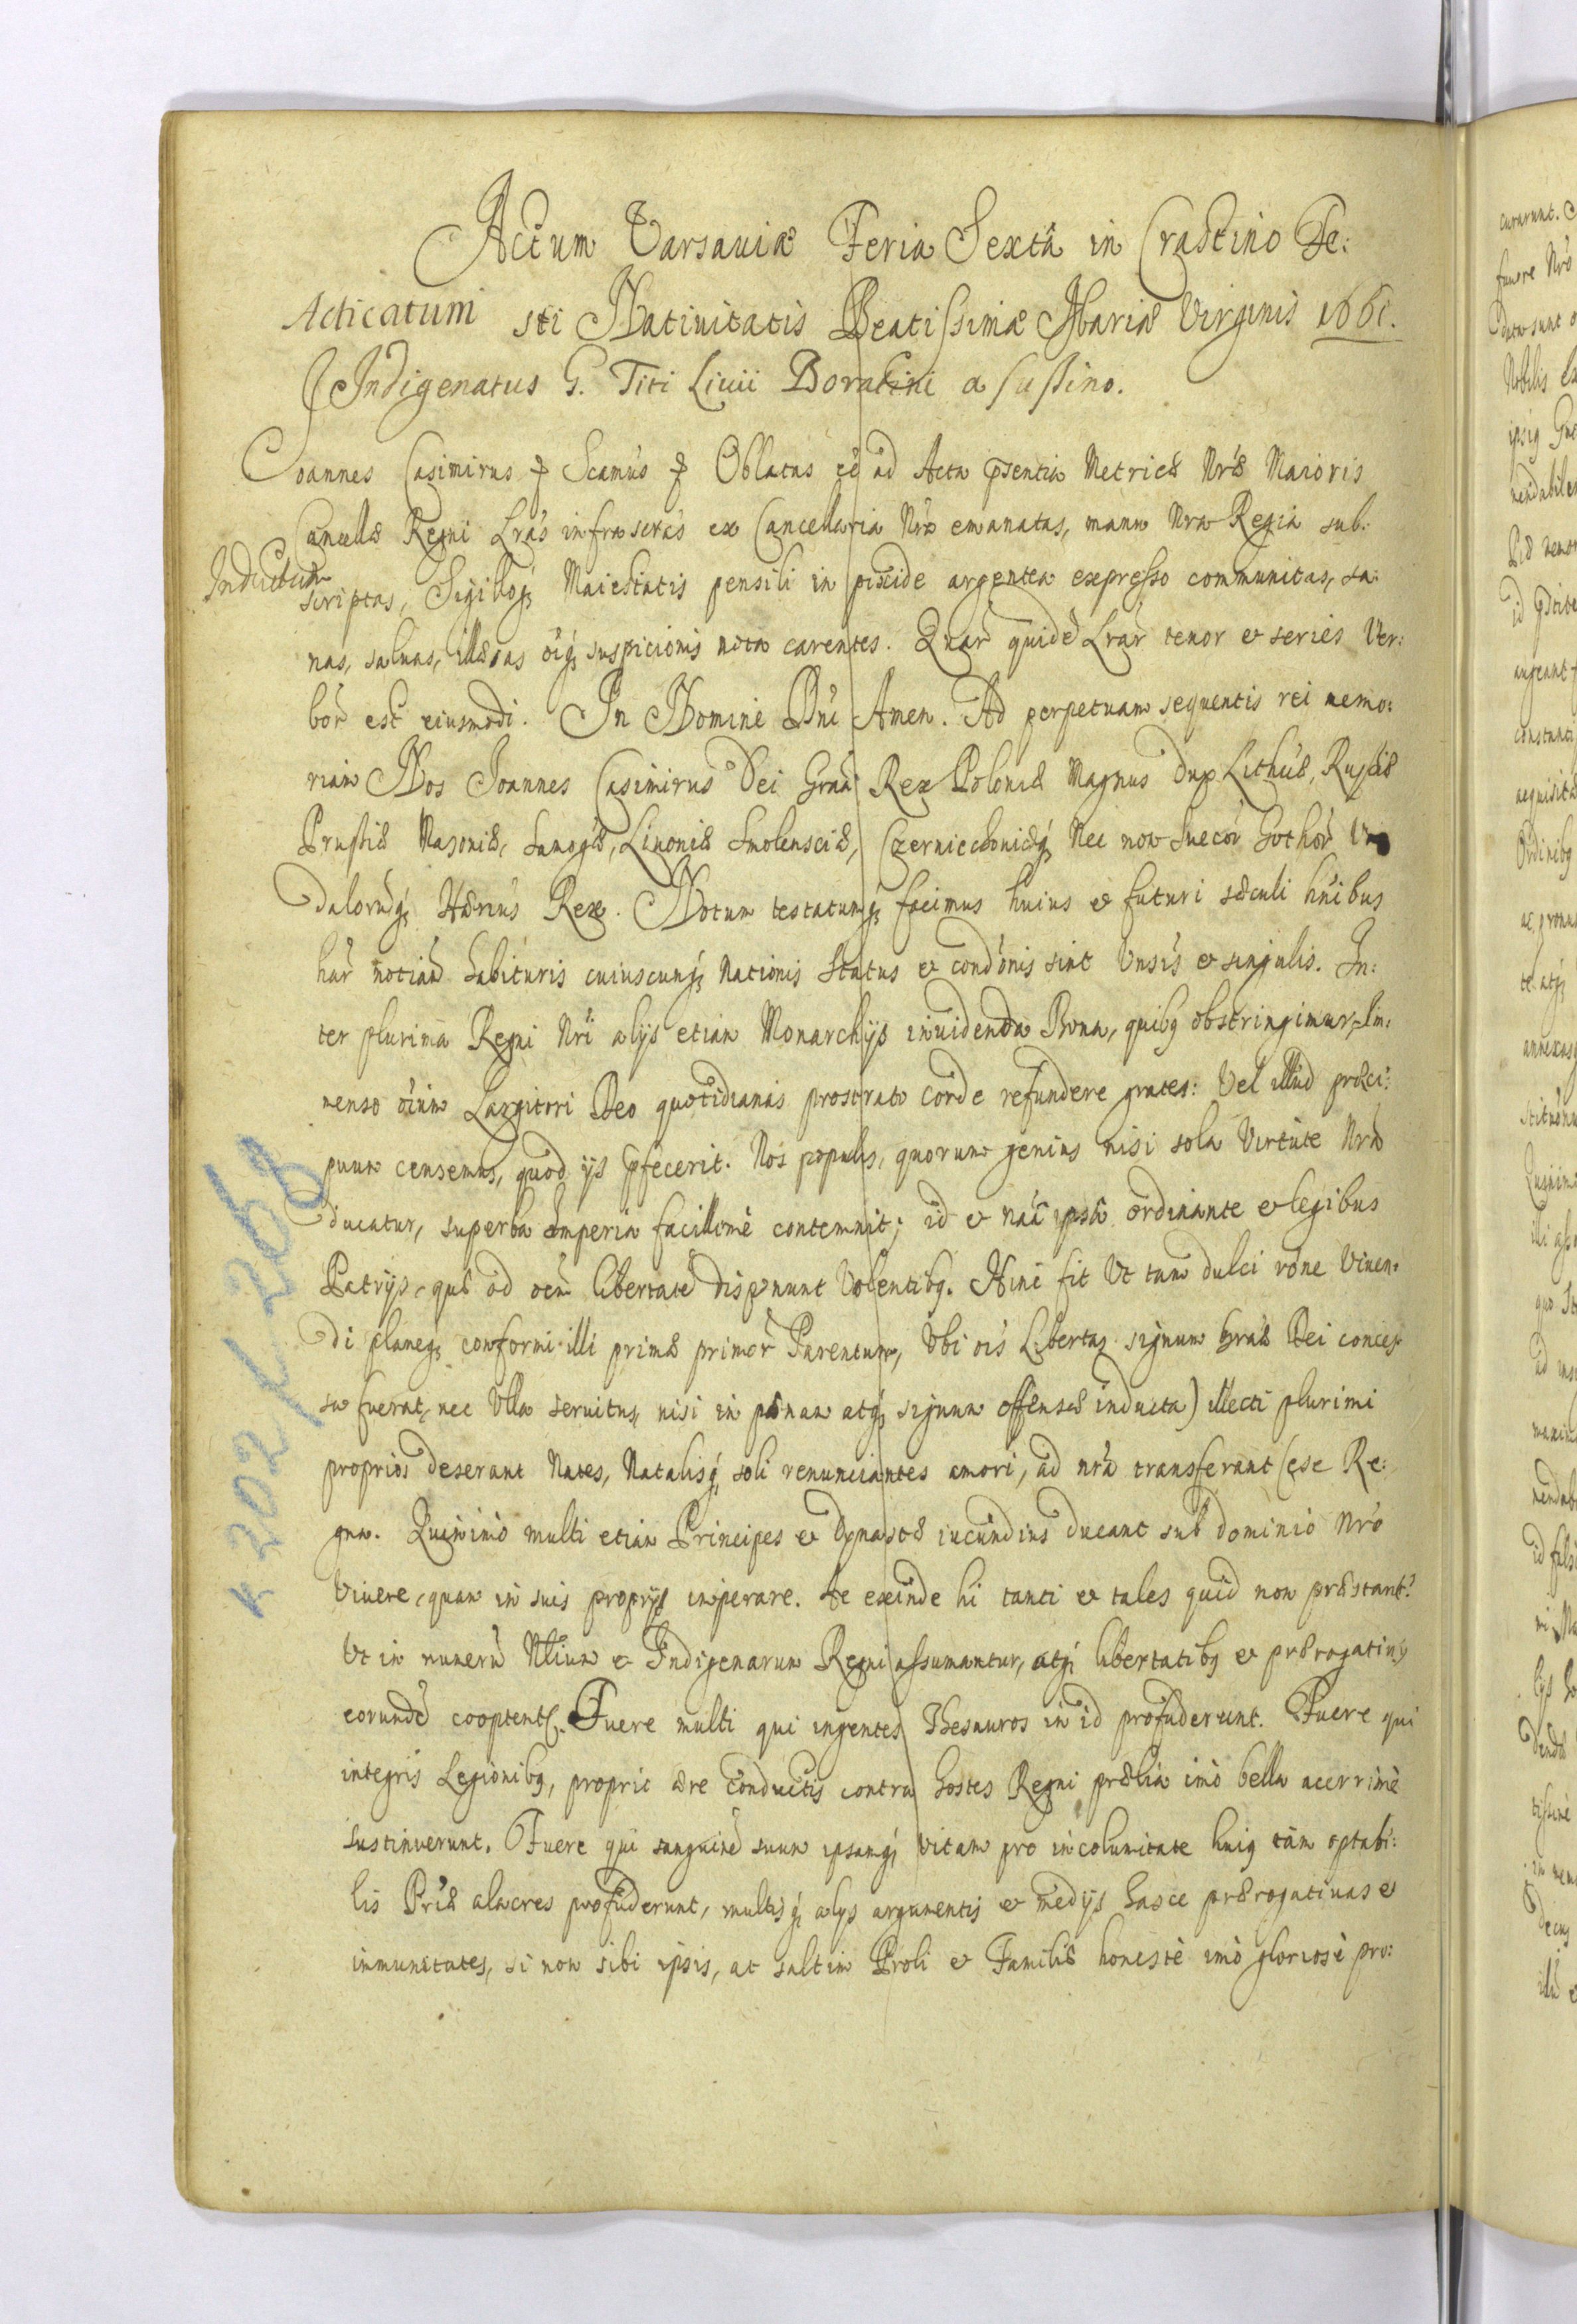 Actum Varsauiæ Feria Sextâ in Crastino Fe:
Acticatum sti Natiuitatis Beatissimæ Mariæ Virginis 1661.
Indigenatus G. Titi Liuii Boratini a sussino.
Joannes Casimirus Oblatas eē ad Acta psentia Metricæ Nræ Maioris
Cancellæ Regni Lrás infrascrás ex Cancellaria Nrâ emanatas, manu Nra Regia sub:
Inductum
scriptas, Sigilloq; Maiestatis pensili in pixide argentea expresso communitas, sa:
nas, saluas, illæsas oīq; suspicionis nota carentes. Quar̃ quidē Lrar̃ tenor et series Ver:
bor̃ est eiusmodi. In Nomine Dñi Amen. Ad perpetuam sequentis rei memo:
riam Nos Joannes Casimirus Dei Grãa Rex Poloniæ Magnus Dux Lithúæ, Russiæ
Prussiæ Masoniæ, Samogæ, Liuoniæ Smolensciæ, Czerniechoniæq; Nec non Suecor̃ Gothor̃ Van
dalorũq; Hærius Rex. Notum testatumq; facimus huius et futuri sæculi hñibus
har̃ notiam habituris cuiuscunq; Nationis Status et condónis sint Vnsis et singulis. In:
ter plurima Regni Nri alijs etiam Monarchijs inuidenda Bona, quibq obstringimur, Im:
menso oīum Largitori Deo quotidianas prostrato corde refundere grates: Vel illud præci:
puum censemus, quod ijs præfecerit. Nos populis, quorum genius nisi sola Virtute Nrâ
ducatur, superba Imperia facillimè contemnit; id et naā ipsâ ordinante et legibus
Patrijs, quæ ad oēm libertatē disponunt Volentibq. Hinc fit Vt tam dulci rone Viuen:
di planeq; conformi illi primæ primor̃ Parentum, Vbi ois Libertas signum Graæ Dei conces
sa fuerat, nec Vlla seruitus, nisi in pænam atq; signum offensæ inducta) illecti plurimi
proprios deserant Nates, Natalisq; soli renunciantes amori, ad nrâ transferant sese Re:
gna. Quinimò multi etiam Principes et Dynastæ iucundius ducant sub dominio Nrō
Viuere, quam in suis proprijs imperare. At exinde hi tanti et tales quid non præstant?
Vt in numerū Nlium et Indigenarum Regni assumantur, atq; libertatibq et prærogatiuis
eorundē cooptent. Fuere multi qui ingentes Thesauros in id profuderunt. Fuere qui
integris Legionibq, proprio ære conductis contra hostes Regni prælia imò bella acerrimè
sustinuerunt. Fuere qui sanguinē suum ipsamq; vitam pro incolumitate huiq tàm optabi:
lis Priæ alacres profuderunt, multisq; alys argumentis et medijs hasce prærogatiuas et
immunitates, si non sibi ipsis, at saltim Proli et Familiæ honestè imò gloriosè pro: